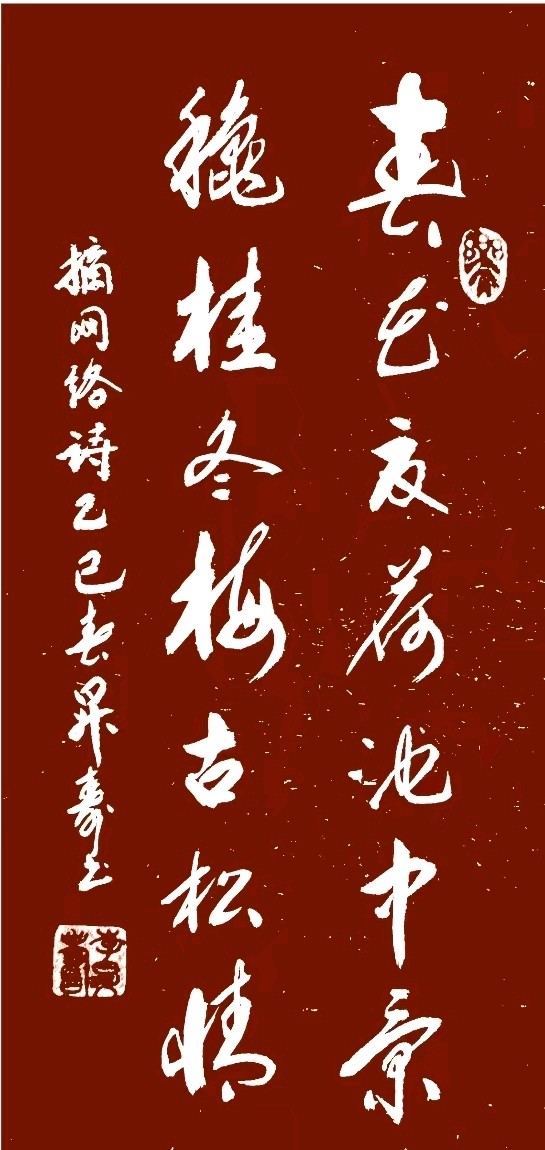 春花夏荷池中景
龝桂冬梅古松情
摘网络诗乙巳春昇寿书